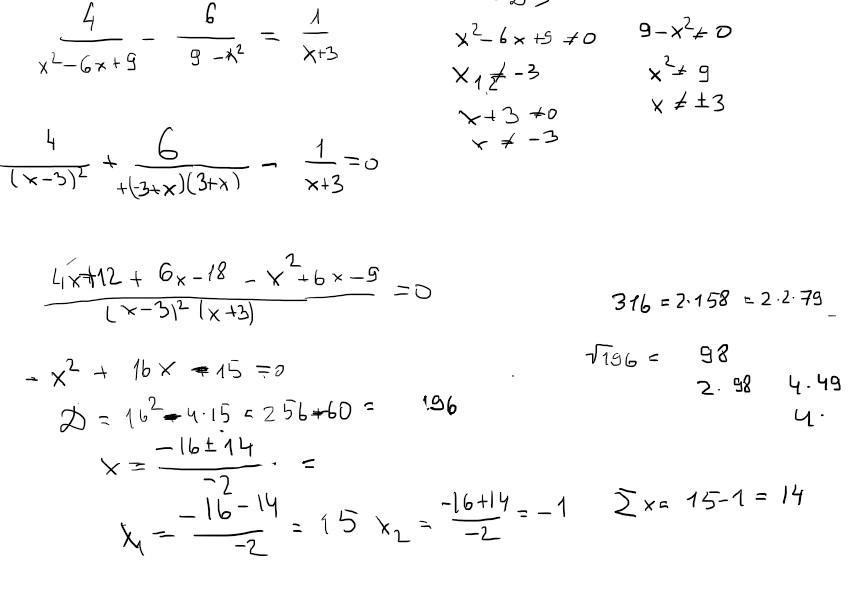 4/(x²-6x+9) - 6/(9-x²) = 1/(x+3)
x²-6x+9 ≠ 0
9-x² ≠ 0
x₁,₂ ≠ -3
x² ≠ 9
x+3 ≠ 0
x ≠ ±3
x ≠ -3
4/(x-3)² + 6/(+(-3+x)(3+x)) - 1/(x+3) = 0
(4x+12 + 6x-18 - x²+6x-9)/((x-3)²(x+3)) = 0
316 = 2·158 = 2·2·79
-x² + 16x - 15 = 0
√196 = 98
2·98 4·49
4·
D = 16² - 4·15 = 256-60 = 196
x = (-16±14)/(-2) · =
x₁ = (-16-14)/(-2) = 15 x₂ = (-16+14)/(-2) = -1
Σx = 15-1 = 14